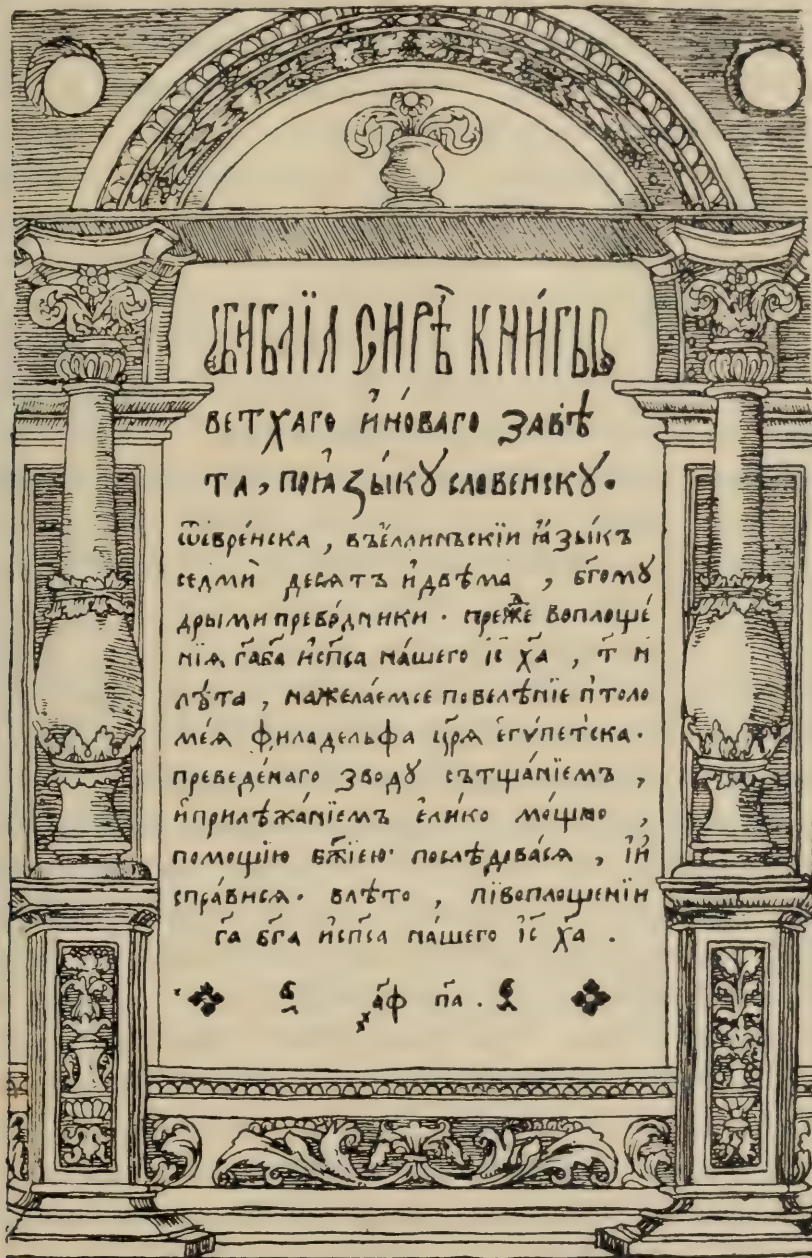 БИБЛЇꙖ СИРѢ҃ КНИ́ГЫ
ВЕТХАГО И҆НО́ВАГО ЗАВѢ
ТА, ПОꙖ҆ЗЫ́КꙊ СЛОВЕНСКꙊ.
ѿевре́нска, въе́ллинъскїи ꙗ҆зы́къ
седми десѧтъ и҆двѣма, бг҃омꙋ
дрыми превѡ́дники. преⷤже воплоще́
нїѧ га҃ба҃ и҆сп҃са на́шего іс҃ ха҃, т҃ и
лѣта, нажела́емое повелѣ́нїе птоло
ме́ѧ филаде́льфа цр҃ѧ еги́петска.
преведе́наго зводꙋ сътща́нїемъ,
и҆прилѣжа́нїемъ е҆ли́ко мо́щно,
помощїю бж҃їею послѣ́довасѧ, їи҆
спра́висѧ. влѣ́то, пївоплощенїи
га҃ бг҃а и҆сп҃са на́шего іс҃ ха҃.
҂аф҃ па҃.